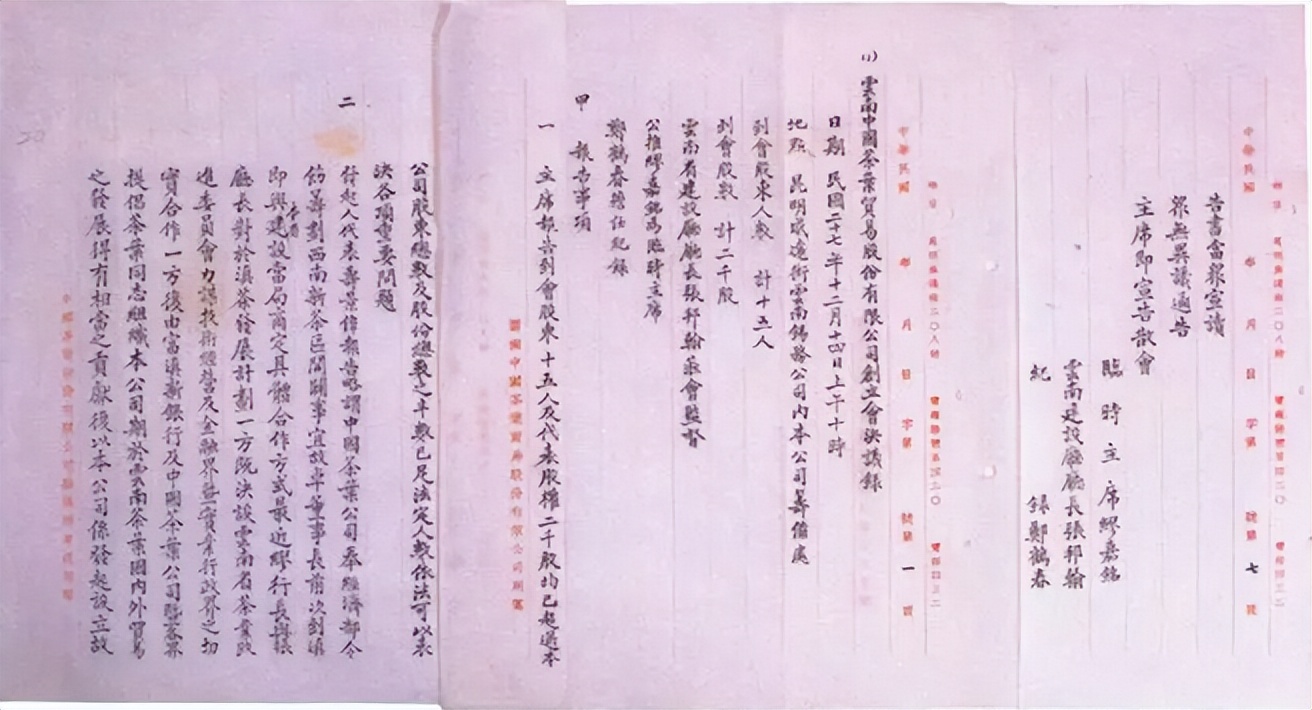 告書當眾宣讀
眾無異議通告
主席即宣告散會
臨時主席繆嘉銘
雲南建設廳廳長張邦翰
紀錄鄭鶴春
中華民國 年 月 日 字第 號第七頁
中華民國 年 月 日 字第 號第一頁
(1) 雲南中國茶葉貿易股份有限公司創立會決議錄
日期 民國二十七年十二月十四日上午十時
地點 昆明威遠街雲南錫務公司內本公司籌備處
到會股東人數 計十五人
到會股數 計二千股
雲南省建設廳廳長張邦翰蒞會監督
公推繆嘉銘為臨時主席
鄭鶴春擔任紀錄
甲 報告事項
一 主席報告到會股東十五人及代表股權二千股均已超過本
公司股東總數及股份總數之半數已足法定人數依法可以表
決各項重要問題
二 發起人代表壽景偉報告略謂中國茶葉公司奉經濟部令
飭籌劃西南新茶區開闢事宜故本董事長前次到滇
即與建設當局商定具體合作方式最近繆行長與張
廳長對於滇茶發展計劃一方既決設雲南省茶業改
進委員會力謀技術經營及金融界與實業行政界之切
實合作一方復由富滇新銀行及中國茶葉公司暨各界
提倡茶葉同志組織本公司期於雲南茶葉國內外貿易
之發展得有相當之貢獻後以本公司係發起設立故